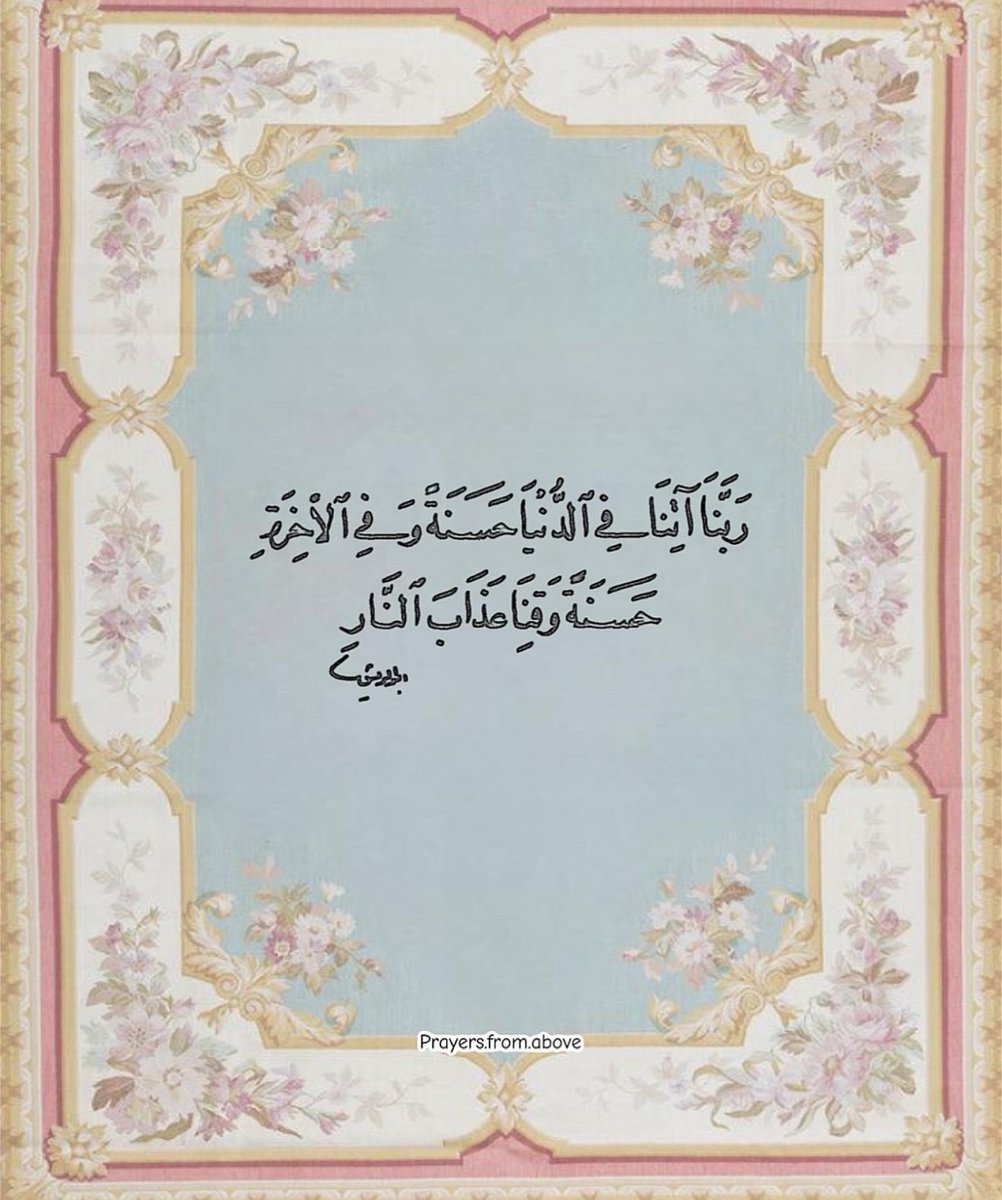 رَبَّنَا آتِنَا فِي ٱلدُّنْيَا حَسَنَةً وَفِي ٱلْأخِرَةِ
حَسَنَةً وَقِنَا عَذَابَ ٱلنَّارِ
Prayers.from.above